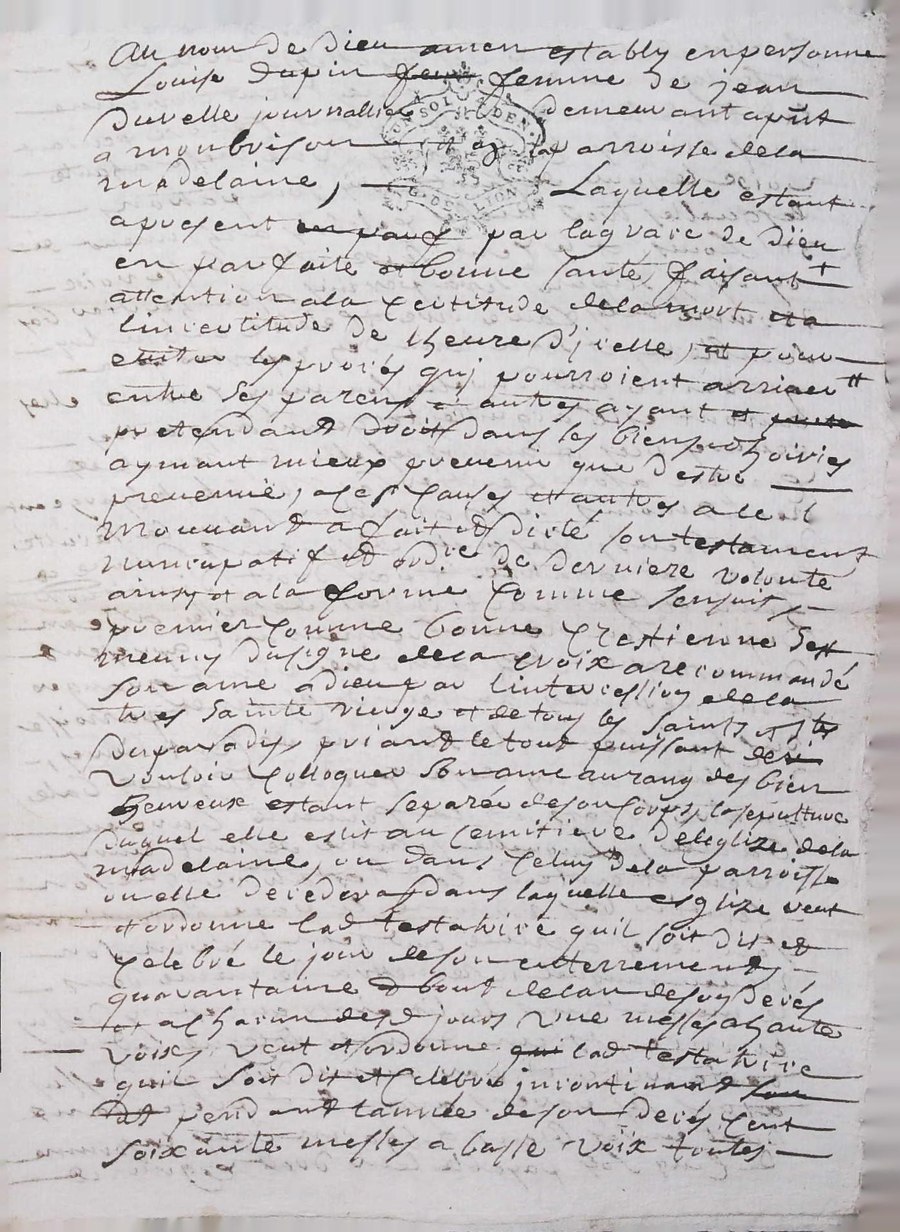 Au nom de dieu amen estably en personne
Louise dupin femme de jean
duvelle journallier demeurant aput
a montbrison parroisse dela
madelaine, Laquelle estant
apresent par la grace de dieu
en parfaite et bonne santé, faisant
attention ala certitude dela mort et a
lincertitude de lheure d'icelle, et pour
eviter les procés qui pourroient arriver
entre ses parens et autres ayant et
pretendant droit dans ses biens et hoiries
aymant mieux prevenir que destre
prevenüe, a ces causes et autres a ce
mouvant a fait et dicté son testament
nuncupatif et ord.re de derniere volonté
ainsy et ala forme comme sensuit,
premier comme bonne crestienne sest
munis du signe dela croix a recommandé
son ame a dieu par lintercession dela
tres sainte vierge et de tous les saints et stes
du paradis, priant le tout puissant de
vouloir colloquer son ame au rang des bien
heureux estant separée de son corps, la sepulture
duquel elle eslit au cemitiere de leglize dela
madelaine, ou dans celuy dela parroisse
ou elle decedera, dans laquelle esglize veut
et ordonne lad testatrice quil soit dit et
celebré le jour de son enterrement,
quarantaine et bout delan de son decés
et a chacun desd jours une messe a haute
voix, veut et ordonne lad testatrice
quil soit dit et celebré incontinant
et pendant lannée de son decés cent
soixante messes a basse voix toutes
SOL DEN
LION